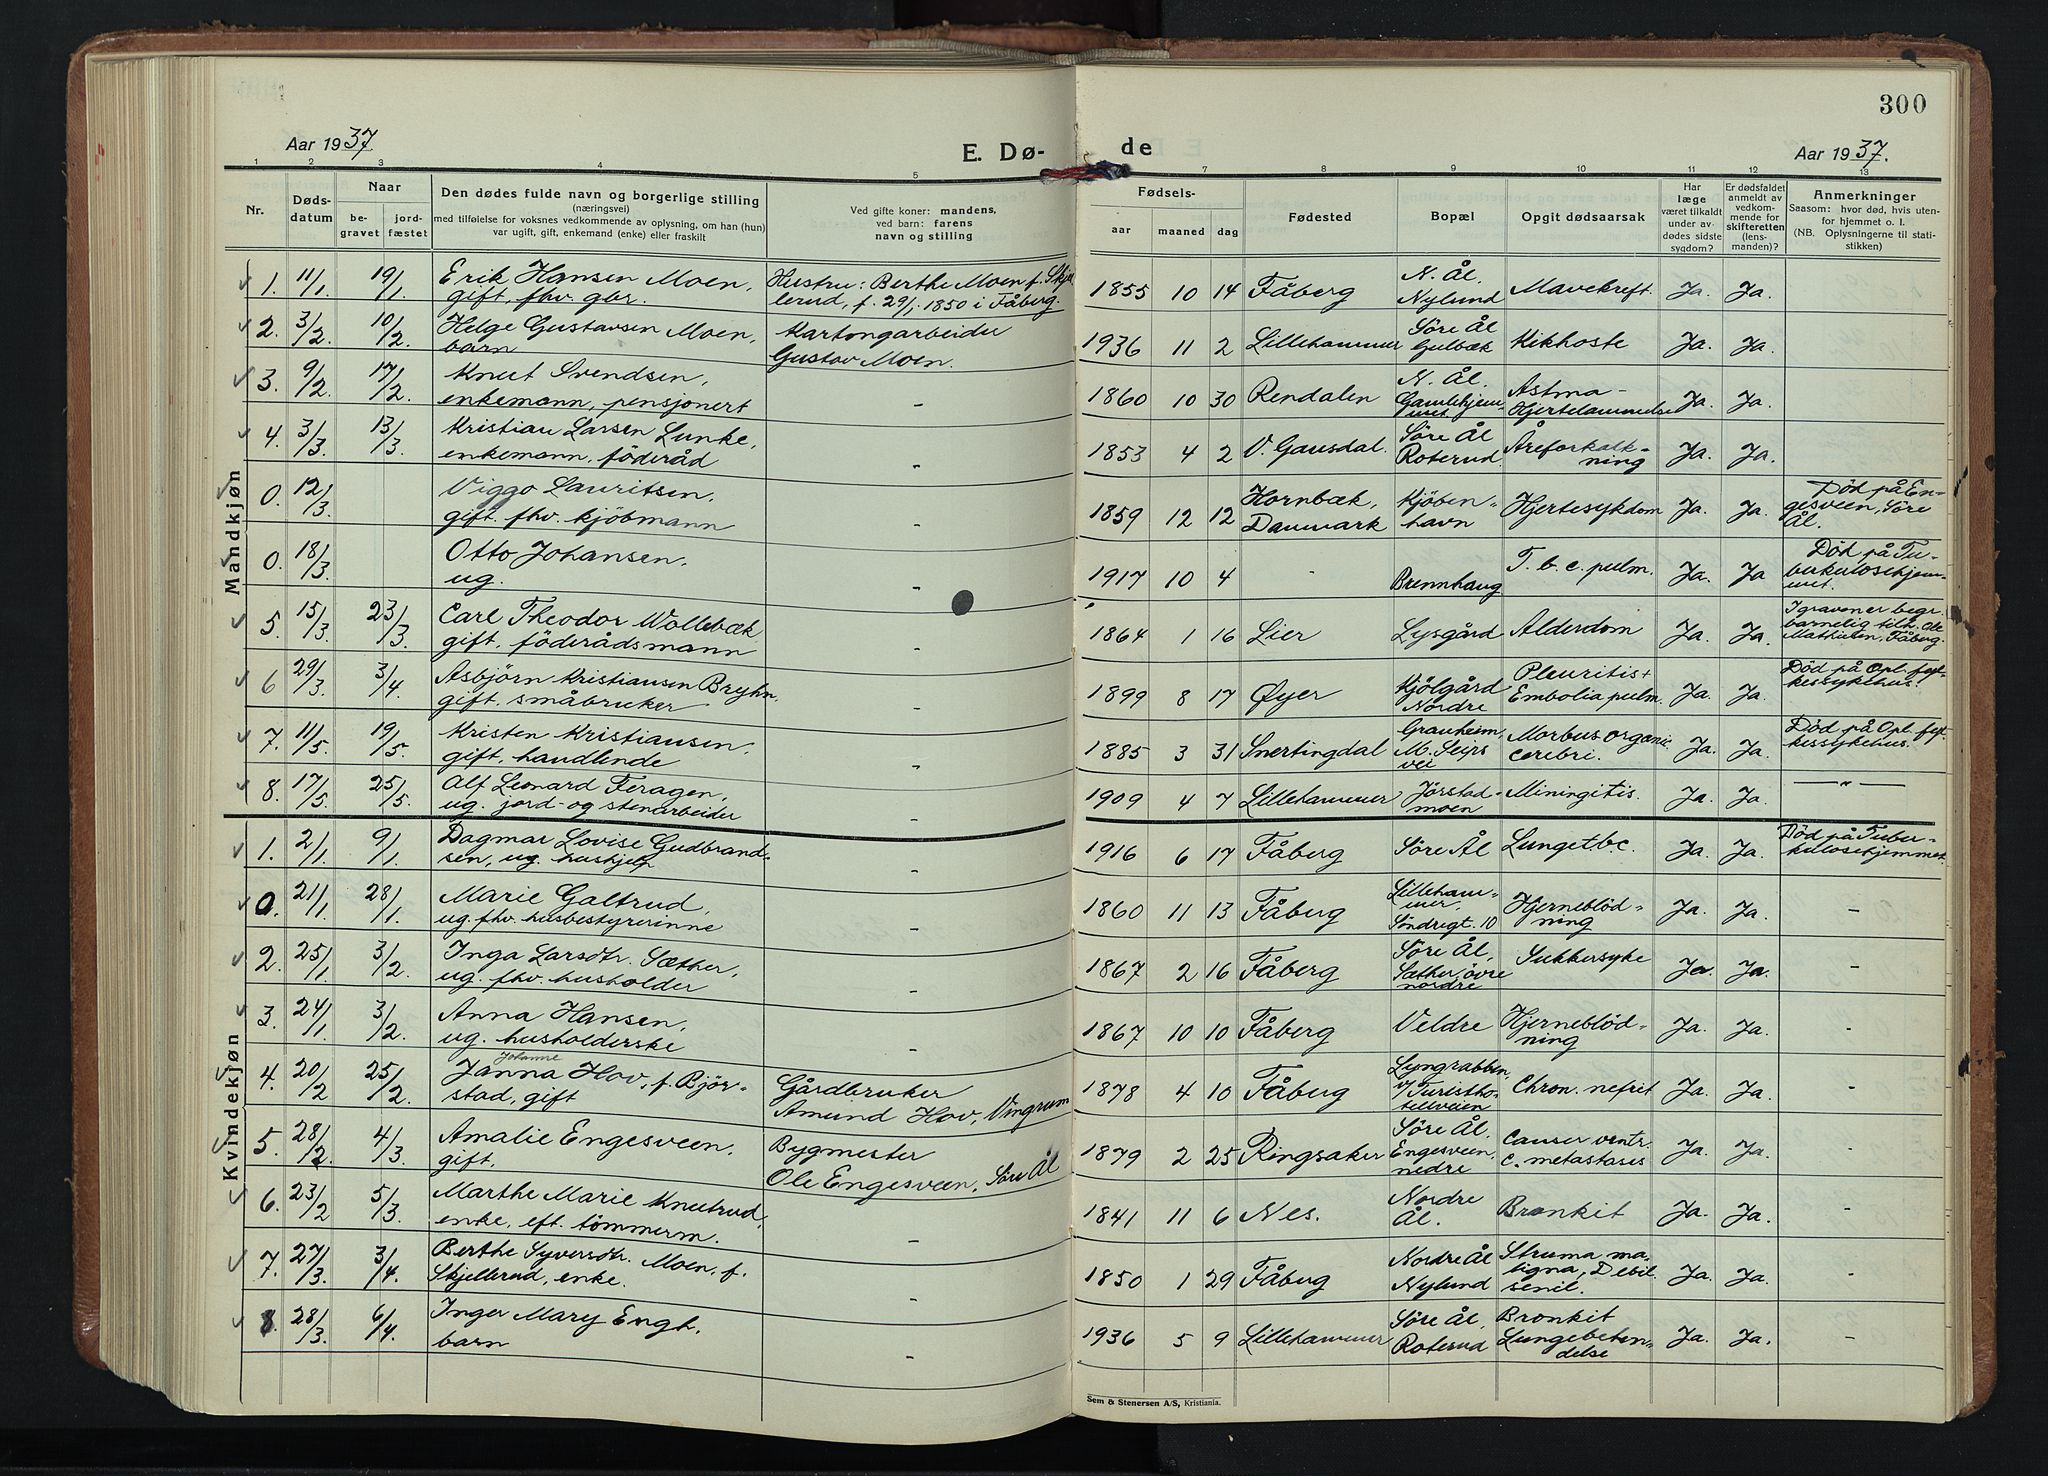 300
Aar 1937
E. Dø-
de
Aar 1937.
1 2 3 4 5 7 8 9 10 11 12 13
Nr.
Døds-
datum
Naar
be-
gravet
jord-
fæstet
Den dødes fulde navn og borgerlige stilling
(næringsvei)
med tilføielse for voksnes vedkommende av oplysning, om han (hun)
var ugift, gift, enkemand (enke) eller fraskilt
Ved gifte koner: mandens,
ved barn: farens
navn og stilling
Fødsels-
aar maaned dag
Fødested
Bopæl
Opgit dødsaarsak
Har
læge
været tilkaldt
under av-
dødes sidste
sygdom?
Er dødsfaldet
anmeldt av
vedkom-
mende for
skifteretten
(lens-
manden)?
Anmerkninger
Saasom: hvor død, hvis uten-
for hjemmet o. l.
(NB. Oplysningerne til stati-
stikken)
Mandkjøn
1. 11/1 19/1 Erik Hansen Moen, gift, fhv. gbr. Hustru: Berthe Moen f. Skjel-
lerud, f. 29/1 1850 i Fåberg 1855 10 14 Fåberg N. Ål. Nylund Mavekreft Ja. Ja.
2. 3/2 10/2 Helge Gustavsen Moen, barn Kartongarbeider Gustav Moen. 1936 11 2 Lillehammer Søre Ål Gulbæk Kikhoste Ja. Ja.
3. 9/2 17/2 Knut Svendsen, enkemann, pensjonert - 1860 10 30 Rendalen N. Ål. Gamlehjemmet Astma - Hjertelammelse Ja. Ja.
4. 3/3 13/3 Kristian Larsen Lunke, enkemann, föderåd " 1853 4 2 V. Gausdal. Søre Ål Roterud. Åreforkalk-
ning Ja. Ja.
0. 12/3 Viggo Lauritsen, gift. fhv. kjöbmann - 1859 12 12 Hornbæk, Danmark Kjöben-
havn Hjertesykdom Ja. Ja. Död på En-
gesveen, Søre Ål.
0. 18/3 Otto Johansen, ug. - 1917 10 4 - Brennhaug T. b. c. pulm. Ja. Ja Död på Tu-
berkulosehjem-
met.
5. 15/3 23/3 Carl Theodor Wollebæk gift, föderådsmann - 1864 1 16 Lier Lysgård Alderdom Ja. Ja. I graven er begr.
Mathisen, Fåberg.
6 29/3 3/4 Asbjörn Kristiansen Bryhn, gift, småbruker - 1899 8 17 Øyer Kjölgård Nordre Pleuritis + Embolia pulm. Ja. Ja. Död på Opl. fyl-
kessykehus.
7. 11/5 19/5 Kristen Kristiansen, gift, handlende - 1885 3 31 Snertingdal Granheim, M. Seips vei Morbus organic. cerebri. Ja. Ja. Död på Opl. fyl-
kessykehus.
8. 17/5 25/5 Alf Leonard Feragen, ug. jord- og stenarbeider - 1909 4 7 Lillehammer Jörstad-
moen Miningitis. Ja. Ja. — " —
Kvindekjøn
1. 2/1 9/1 Dagmar Lovise Gudbrand-
sen, ug. hushjelp - 1916 6 17 Fåberg Søre Ål Lunget.b.c. Ja. Ja. Död på Tuber-
kulosehjemmet.
0. 21/1 28/1 Marie Galtrud, ug. fhv. husbestyrerinne - 1860 11 13 Fåberg Lilleham-
mer, Söndregt. 10 Hjerneblöd-
ning Ja. Ja. -
2. 25/1 3/2 Inga Larsdtr. Sæther, ug. fhv. husholder - 1867 2 16 Fåberg Søre Ål, Sæther, övre nordre Sukkersyke Ja. Ja. -
3. 24/1 3/2 Anna Hansen, ug. husholderske - 1867 10 10 Fåberg Veldre Hjerneblöd-
ning Ja. Ja. -
4. 20/2 25/2 Johanne
Janna Hov, f. Björ-
stad, gift Gårdbruker Amund Hov, Vingrum 1878 4 10 Fåberg Lyngrabben, v/ Turistho-
tellveien Chron. nefrit Ja. Ja. -
5. 28/2 4/3 Amalie Engesveen, gift, Bygmester Ole Engesveen, Søre Ål 1879 2 25 Ringsaker Søre Ål, Engesveen, nedre Cancer ventr. c. metastasis Ja. Ja. -
6. 23/2 5/3 Marthe Marie Knutrud, enke, eft. tömmerm. - 1841 11 6 Nes. Nordre Ål. Bronkit Ja. Ja. -
7. 27/3 3/4 Berthe Syversdtr. Moen, f. Skjellerud, enke. - 1850 1 29 Fåberg Nordre Ål Nylund Struma ma-
ligna, Debil. senil. Ja. Ja. -
8. 28/3 6/4 Inger Mary Engh, barn - 1936 5 9 Lillehammer Søre Ål, Roterud Bronkit Lungebeten-
delse Ja. Ja. -
Sem & Stenersen A/S, Kristiania.